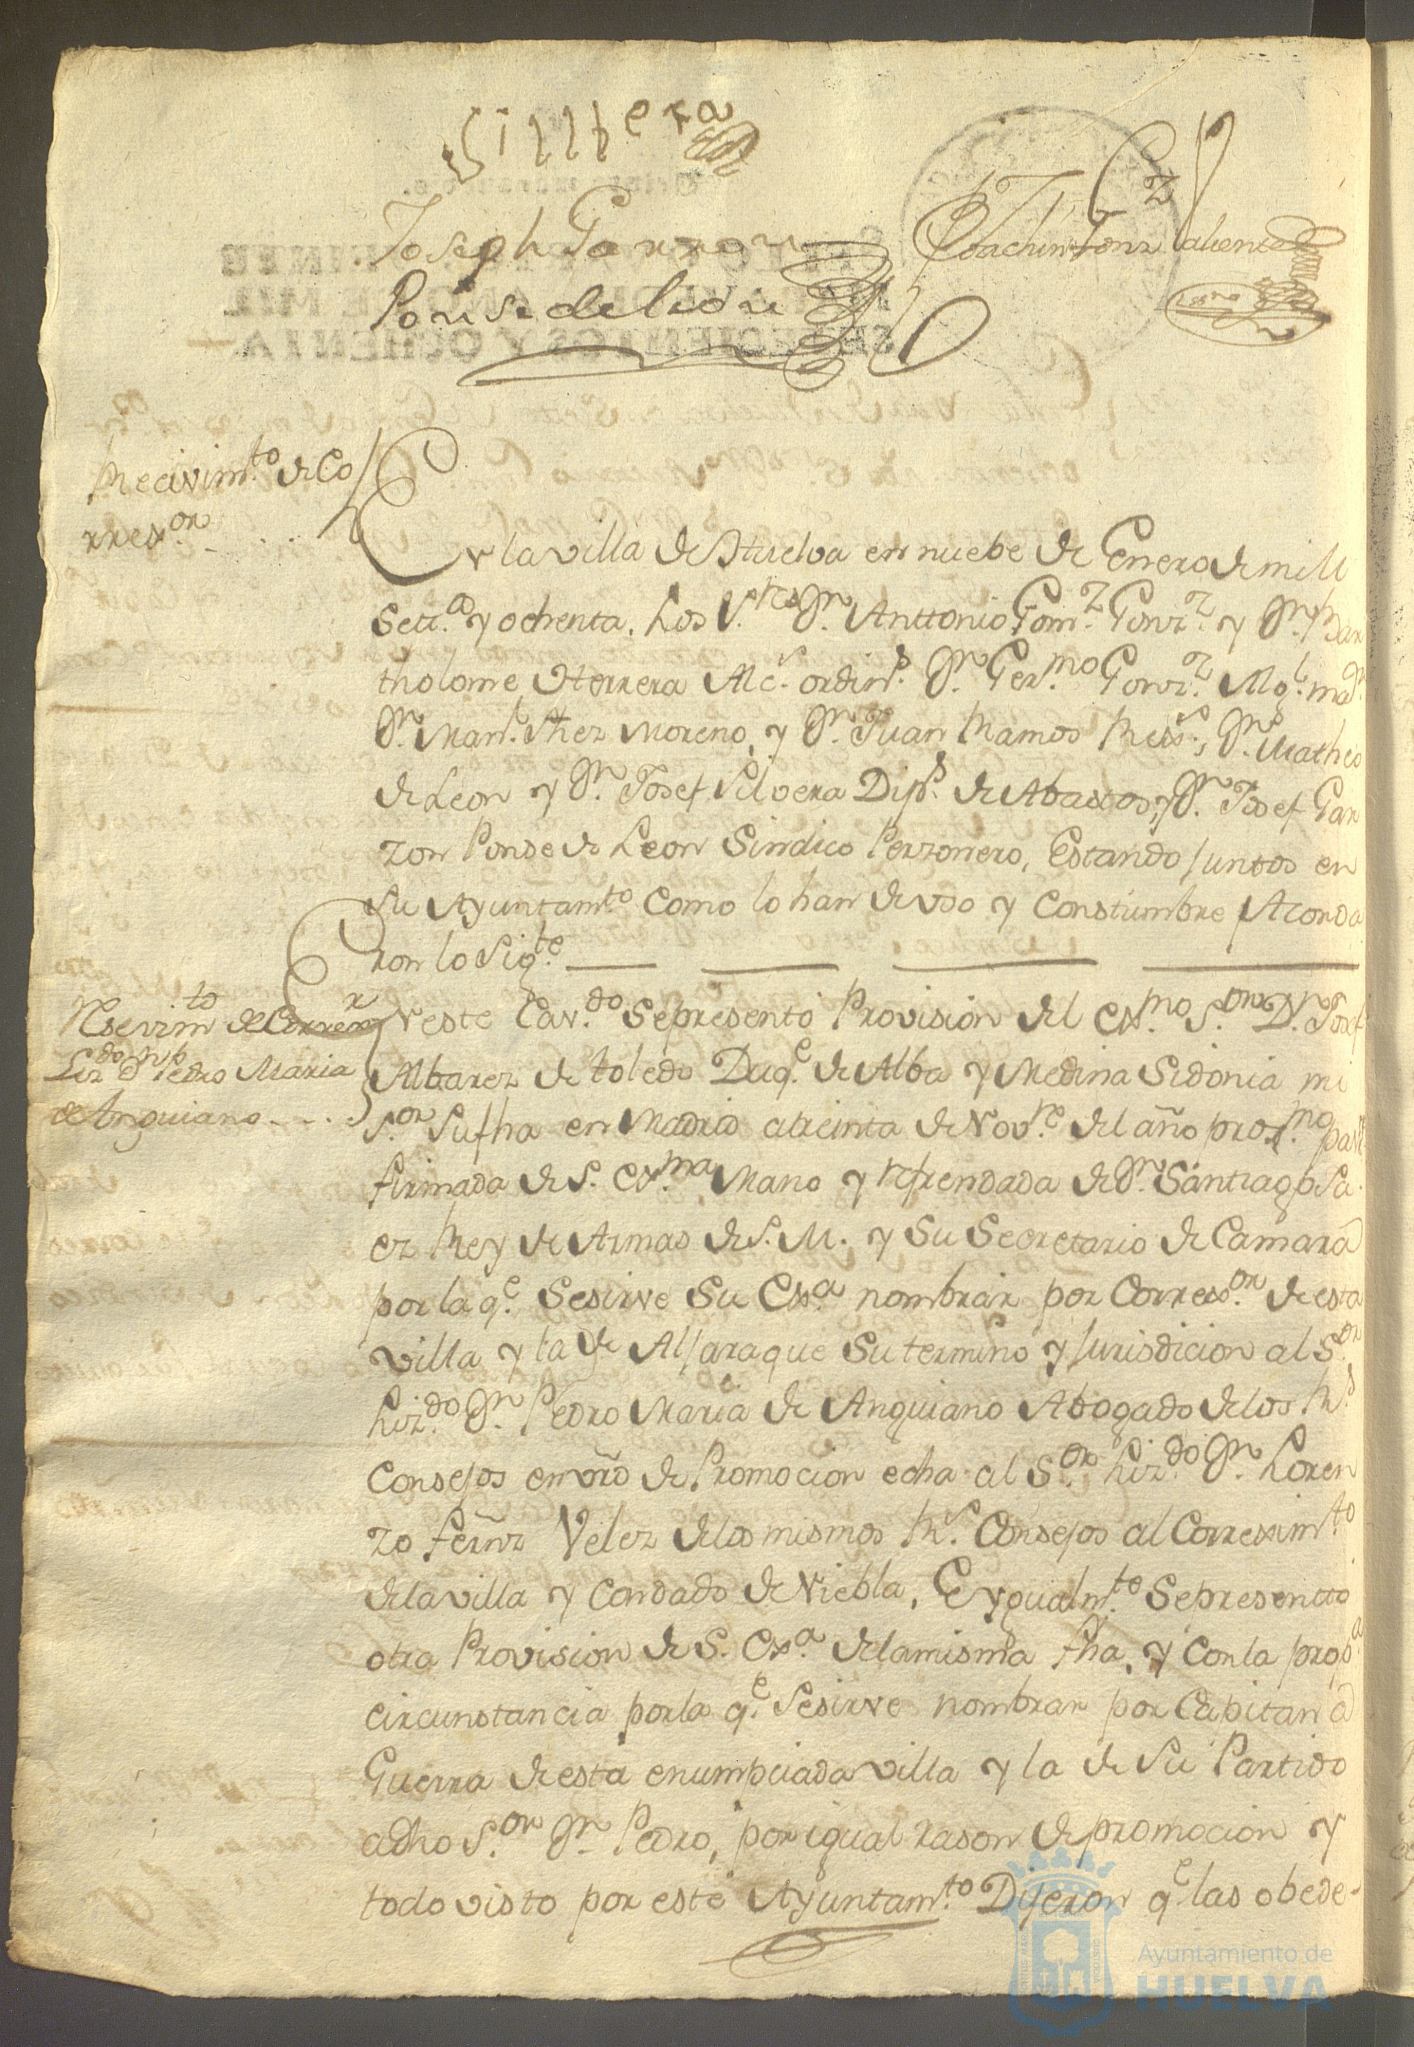 Sillbera
Joseph Garzon
Ponse de leon
Joachin Gonz Valiente
Recivim.to de Co
rrex.or
En la villa de Huelva en nuebe de Enero de mill
Sett.os y ochenta. Los S.res Dn. Anttonio Gom.z Gonz.z y Dn. Bar
tholome Herrera Alc.s ordin.s Dn. Ger.mo Gonz.z Alg.l ma.or
Dn. Man.l Shez Moreno, y Dn. Juan Ramos Rex.s, Dn. Matheo
de Leon y Dn. Josef Silvera Dip.s de Abastos, y Dn. Josef Gar
zon Ponse de Leon Sindico Perzonero, Estando juntos en
su Ayuntam.to como lo han de uso y Constumbre Acorda
ron lo Sig.te
Resevim.to de Correx.r
Liz.do Dn. Pedro Maria
de Anguiano
En este Cav.do Se presentó Provision del Ex.mo S.or Dn. Josef
Albarez de toledo Duq.e de Alba y Medina Sidonia mi
S.or Su fha en Madrid a treinta de Nov.re del año prox.mo pas.do
firmada de S. Ex.ma Mano y refrendada de Dn. Santiago Sa
ez Rey de Armas de S. M. y Su Secretario de Camara
por la q.e Se sirve Su Ex.a nombrar por Correx.or de esta
villa y la de Aljaraque Su termino y jurisdicion al S.or
Liz.do Dn. Pedro Maria de Anguiano Abogado de los R.s
Consejos en vrd de Promocion echa al S.or Liz.do Dn. Loren
zo fernz Velez de los mismos R.s Consejos al Correxim.to
de la villa y Condado de Niebla, E ygualm.te Se presentto
otra Provision de S. Ex.a de la misma fha, y Con la prop.a
circunstancia por la q.e Se sirve nombrar por Capitan á
Guerra de esta enumpciada villa y la de Su Partido
a dho S.or Dn. Pedro, por igual rason de promocion y
todo visto por este Ayuntam.to Dijeron q.e las obede-
Ayuntamiento de
HUELVA